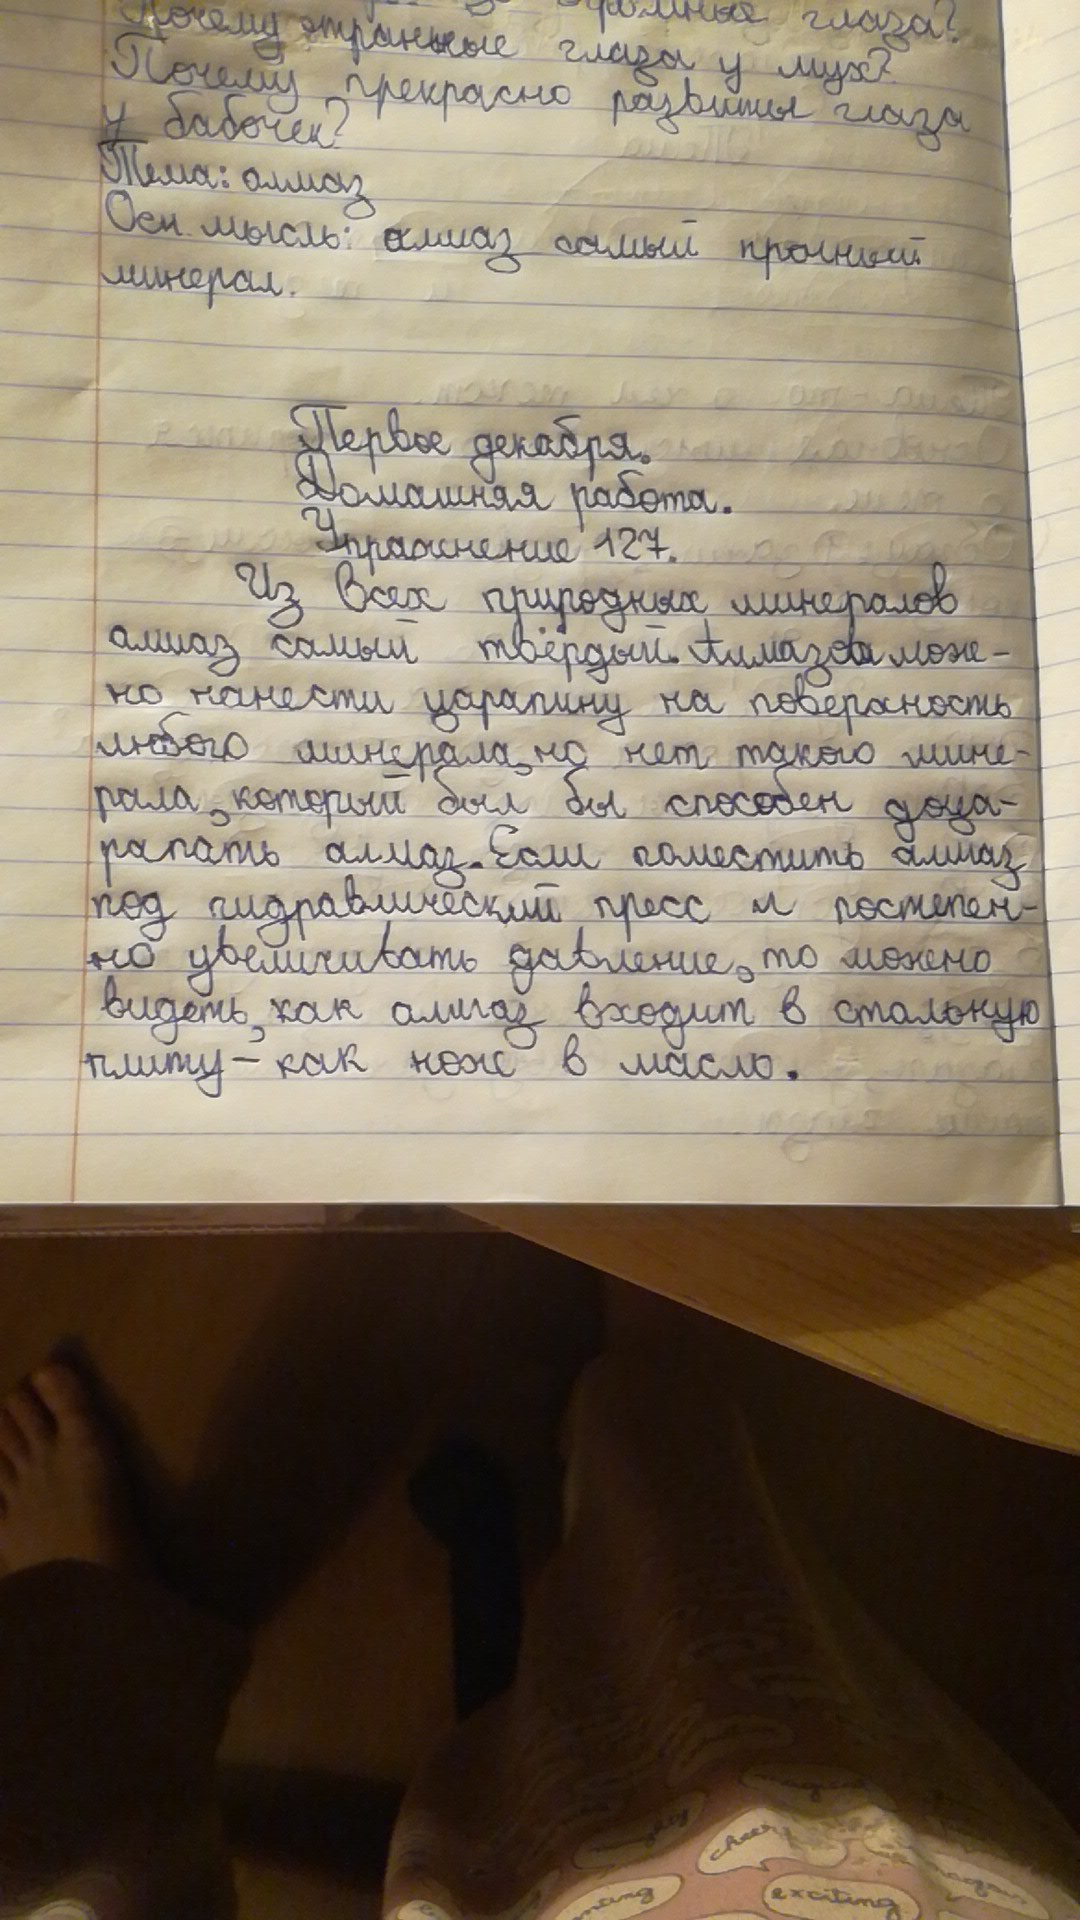 огромные глаза?
Почему странные глаза у мух?
Почему прекрасно развиты глаза
у бабочек?
Тема: алмаз
Осн. мысль: алмаз самый прочный
минерал.
Первое декабря.
Домашняя работа.
Упражнение 127.
Из всех природных минералов
алмаз самый твёрдый. Алмазом мож-
но нанести царапину на поверхность
любого минерала, но нет такого мине-
рала, который был бы способен доца-
рапать алмаз. Если поместить алмаз
под гидравлический пресс и постепен-
но увеличивать давление, то можно
видеть, как алмаз входит в стальную
плиту - как нож в масло.
cheer
exciting